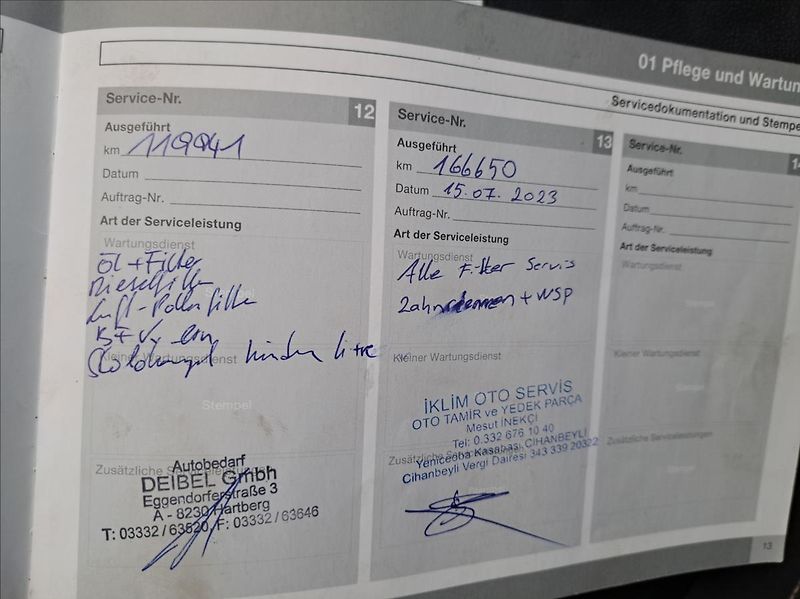 01 Pflege und Wartun
Servicedokumentation und Stempe
Service-Nr. 12
Ausgeführt
km 119941
Datum
Auftrag-Nr.
Art der Serviceleistung
Wartungsdienst
Öl + Filter
Dieselfilter
Luft-Pollenfilter
Kleiner Wartungsdienst
hinten
Stempel
Zusätzliche Serviceleistungen
Autobedarf
DEIBEL GmbH
Eggendorferstraße 3
A - 8230 Hartberg
T: 03332 / 63520, F: 03332 / 63646
Service-Nr. 13
Ausgeführt
km 166650
Datum 15.07.2023
Auftrag-Nr.
Art der Serviceleistung
Wartungsdienst
Alle Filter Servis
Zahn + WSP
Kleiner Wartungsdienst
İKLİM OTO SERVİS
OTO TAMİR ve YEDEK PARÇA
Mesut İNEKÇİ
Tel: 0.332 676 10 40
Yeniceoba Kasabası CİHANBEYLİ
Zusätzliche
Cihanbeyli Vergi Dairesi 343 339 20322
Service-Nr. 14
Ausgeführt
km
Datum
Auftrag-Nr.
Art der Serviceleistung
Wartungsdienst
Stempel
Kleiner Wartungsdienst
Stempel
Zusätzliche Serviceleistungen
13